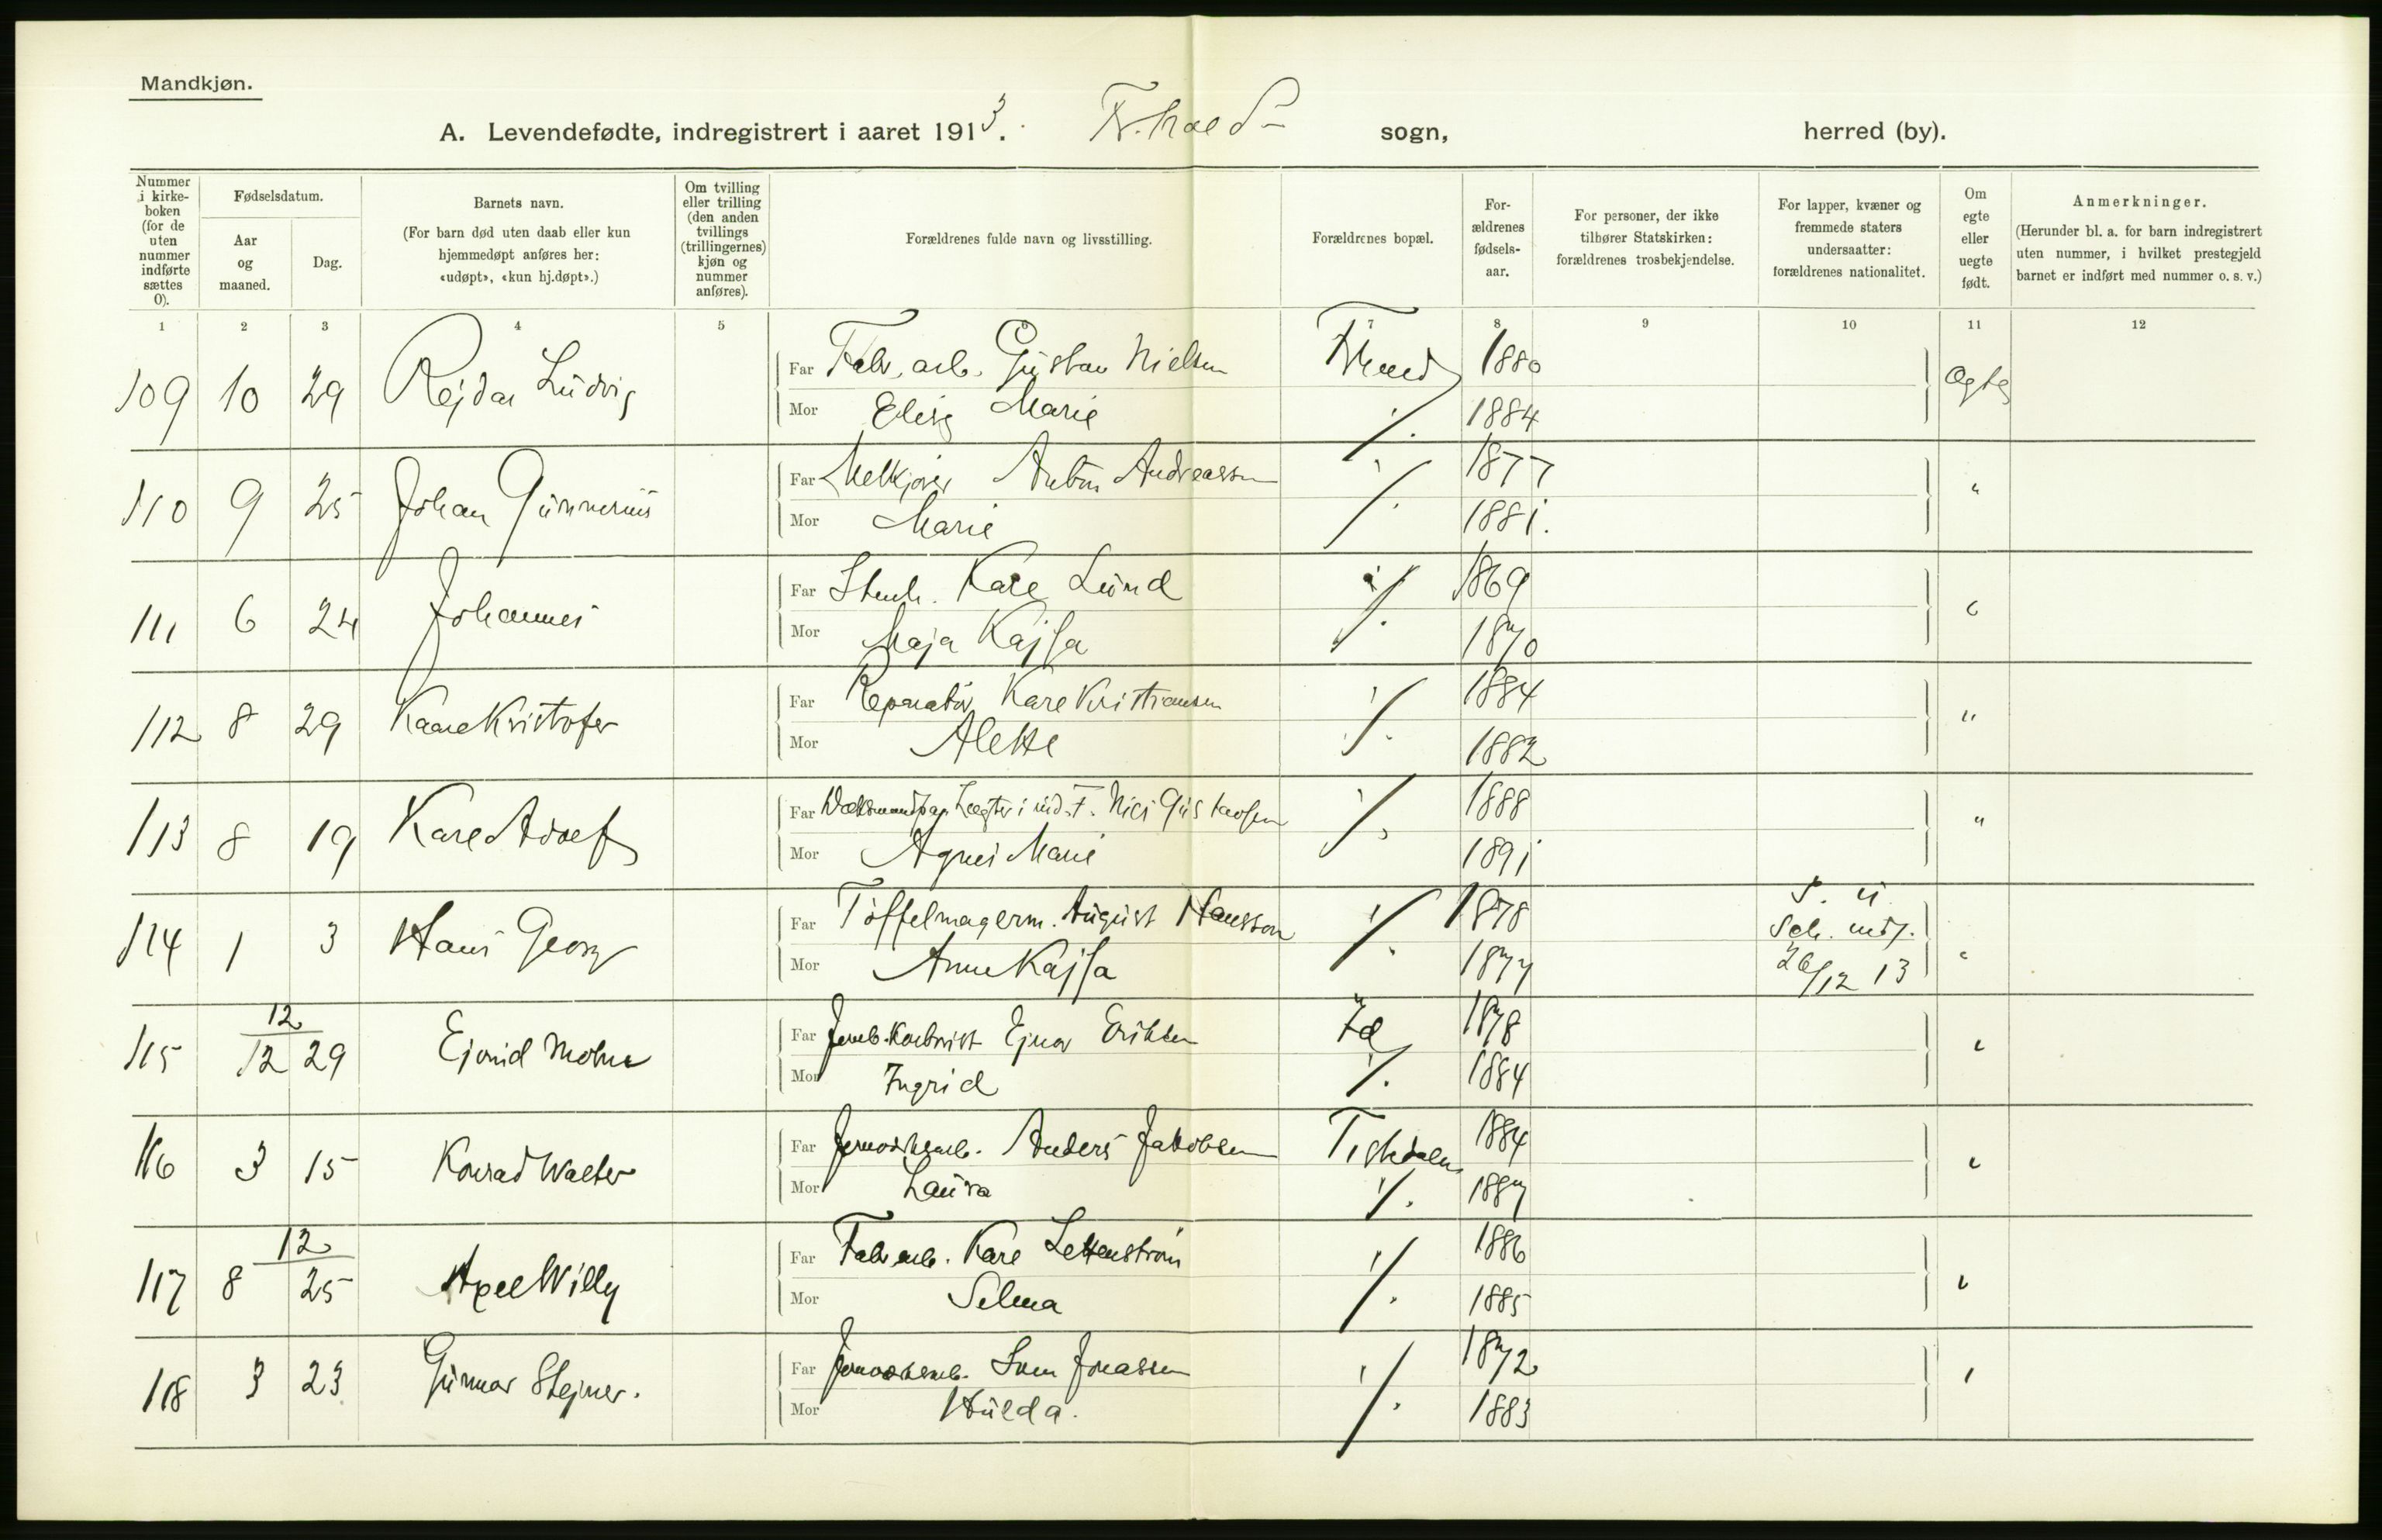 Mandkjøn.
A. Levendefødte, indregistrert i aaret 1913. Fr.hald sogn, herred (by).
Nummer i kirke-boken (for de uten nummer indførte sættes 0).
Fødselsdatum.
Aar og maaned.
Dag.
Barnets navn.
(For barn død uten daab eller kun hjemmedøpt anføres her: «udøpt», «kun hj.døpt».)
Om tvilling eller trilling (den anden tvillings (trillingernes) kjøn og nummer anføres).
Forældrenes fulde navn og livsstilling.
Forældrenes bopæl.
For-ældrenes fødsels-aar.
For personer, der ikke tilhører Statskirken: forældrenes trosbekjendelse.
For lapper, kvæner og fremmede staters undersaatter: forældrenes nationalitet.
Om egte eller uegte født.
Anmerkninger.
(Herunder bl. a. for barn indregistrert uten nummer, i hvilket prestegjeld barnet er indført med nummer o. s. v.)
1 2 3 4 5 6 7 8 9 10 11 12
109 10 29 Rejdar Ludvig Far Fabr. arb. Gustav Nielsen Frhald 1880 Ægte
Mor Elise Marie ./. 1884
110 9 25 Johan Gunnerius Far Melkjører Anton Andreassen ./. 1877 "
Mor Marie 1881.
111 6 24 Johannes Far Stenh. Karl Lund ./. 1869 "
Mor Maja Kajsa 1870
112 8 29 Kaare Kristofer Far Reparatør Karl Kristiansen ./. 1884 "
Mor Alette 1882
113 8 19 Karl Adolf Far Nils Gustavsen ./. 1888 "
Mor Agnes Marie 1891
114 1 3 Hans Georg Far Tøffelmagerm. August Hansson ./. 1878 S. u. "
Mor Anna Kajsa 1877 Sch. uds. 26/12 13
115 12 12 29 Ejvind Mohn Far Jernb. Kontorist Ejnar Eriksen Id 1878 "
Mor Ingrid ./. 1884
116 3 15 Konrad Walter Far Jernvarkarb. Anders Jakobsen Tistedalen 1884 "
Mor Laura ./. 1887
117 8 12 25 Axel Willy Far Fabr arb. Karl Lettenstrøm ./. 1886 "
Mor Selma 1885
118 3 23 Gunnar Stejner. Far Sven Jonassen ./. 1872 "
Mor Hulda. 1883